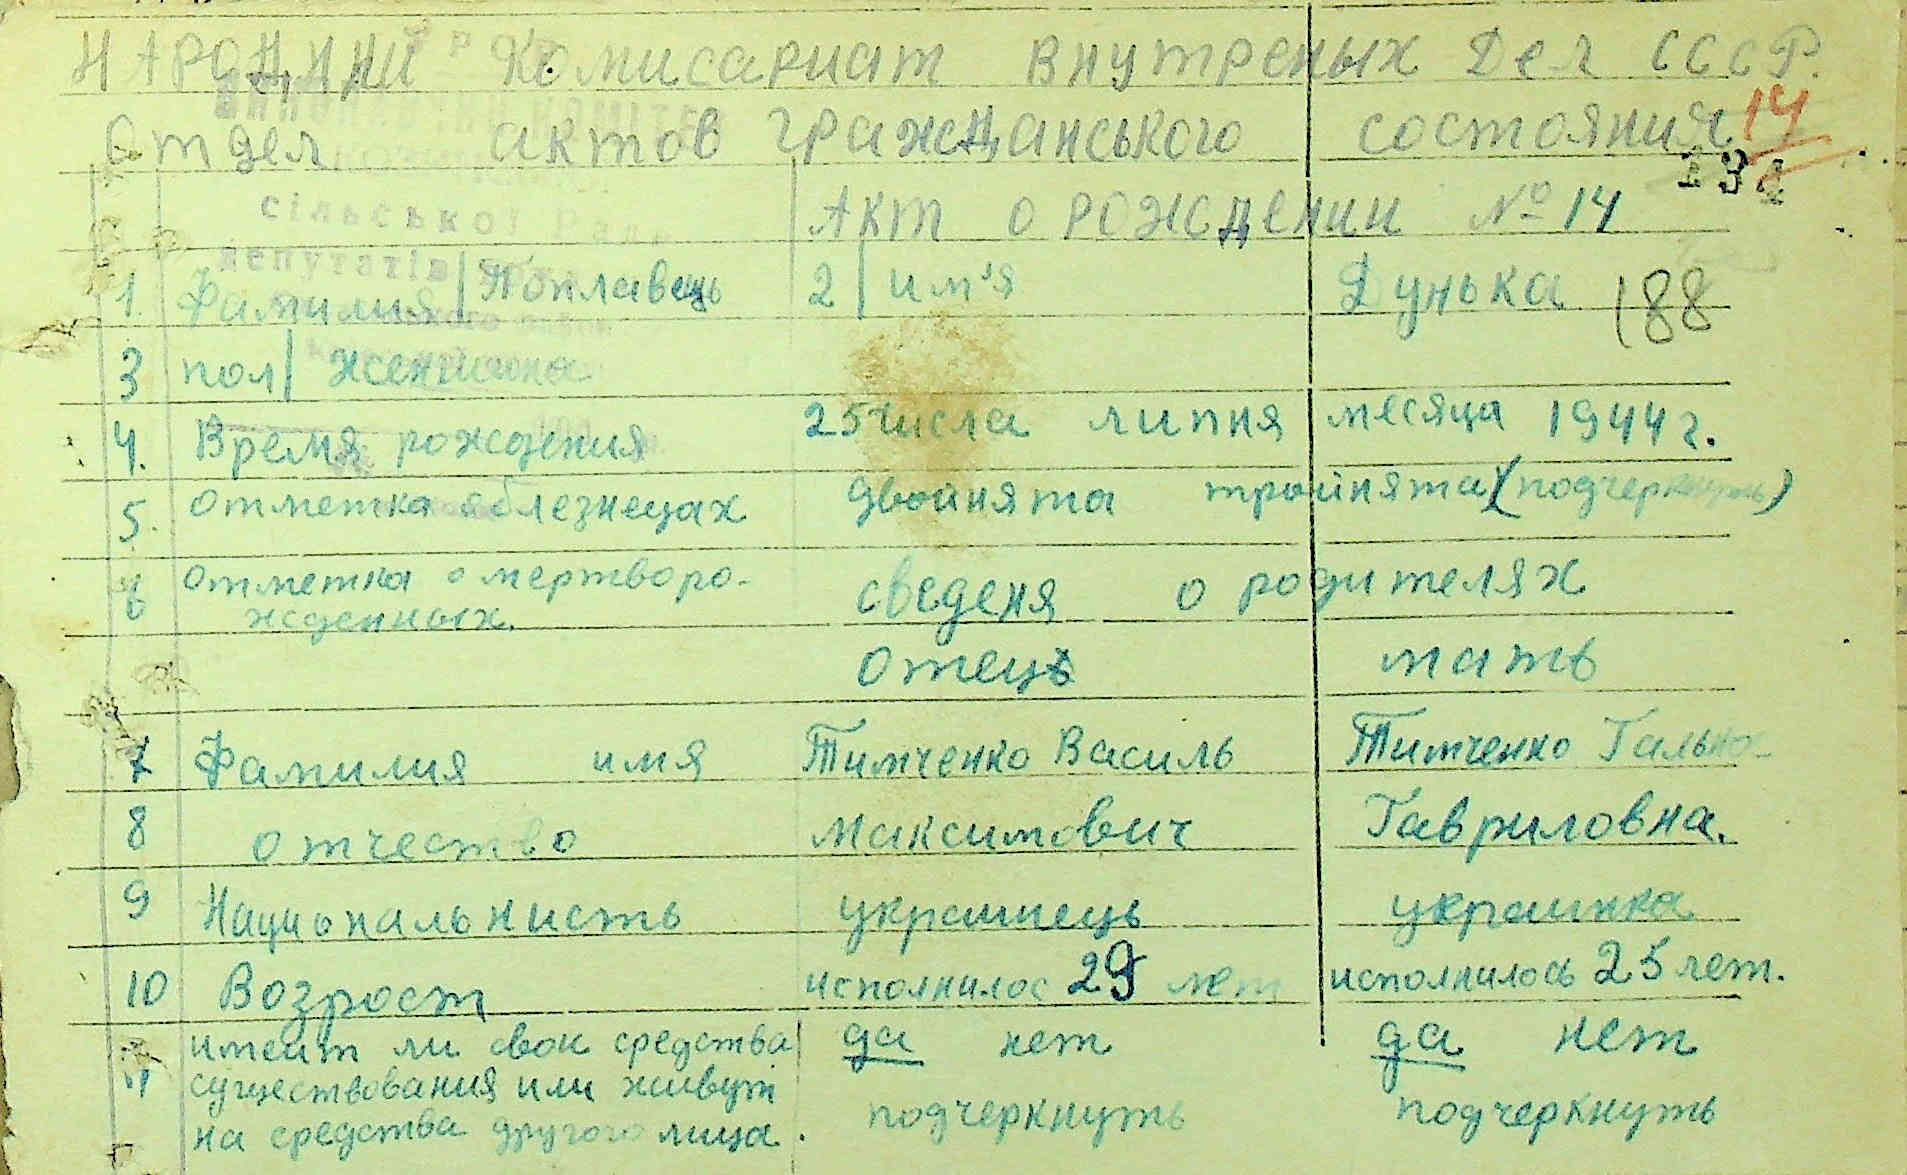 НАРОДНИЙ Комисариат внутреных Дел СССР.
Отдел актов гражданського состояния 14
131
сільської Ради
депутатів
АКТ о рождении № 14
1. Фамилия | Поплавець 2 | им'я Дунька 188
3 пол | женщина
4. Время рождения 25 числа липня месяца 1944 г.
5. отметка о блезнецах двойнята тройнята (подчеркнуть)
6 отметка о мертворо-
жденных. сведеня о родителях
отець мать
7 Фамилия имя Тимченко Василь Тимченко Галька
8 отчество Максимович Гавриловна.
9 Национальнисть украинець украинка
10 Возрост исполнилос 29 лет исполнилось 25 лет.
11 имеит ли свои средства да нет да нет
существования или живут
на средства другого лица. подчеркнуть подчеркнуть